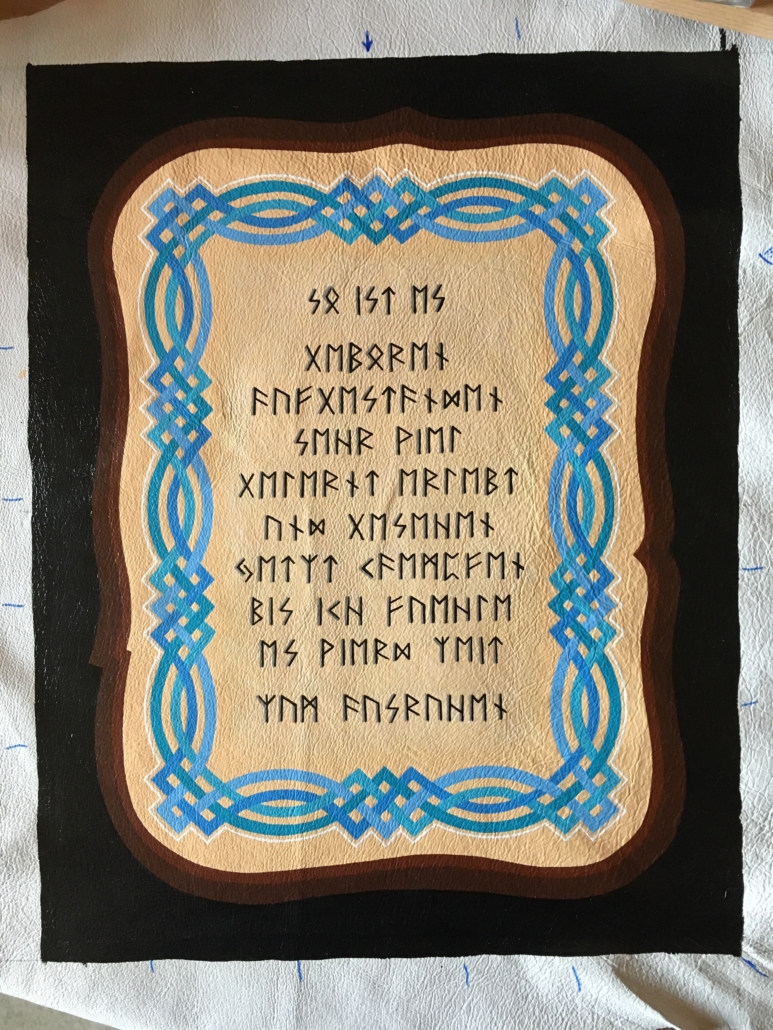 ᛋᛟ ᛁᛋᛏ ᛖᛋ
ᚷᛖᛒᛟᚱᛖᚾ
ᚨᚢᚠᚷᛖᛋᛏᚨᚾᛞᛖᚾ
ᛋᛖᚺᚱ ᚹᛁᛖᛚ
ᚷᛖᛚᛖᚱᚾᛏ ᛖᚱᛚᛖᛒᛏ
ᚢᚾᛞ ᚷᛖᛋᛖᚺᛖᚾ
ᛃᛖᛏᛉᛏ ᚲᚨᛖᛗᛈᚠᛖᚾ
ᛒᛁᛋ ᛁᚲᚺ ᚠᚢᛖᚺᛚᛖ
ᛖᛋ ᚹᛁᛖᚱᛞ ᛉᛖᛁᛏ
ᛉᚢᛗ ᚨᚢᛋᚱᚢᚺᛖᚾ